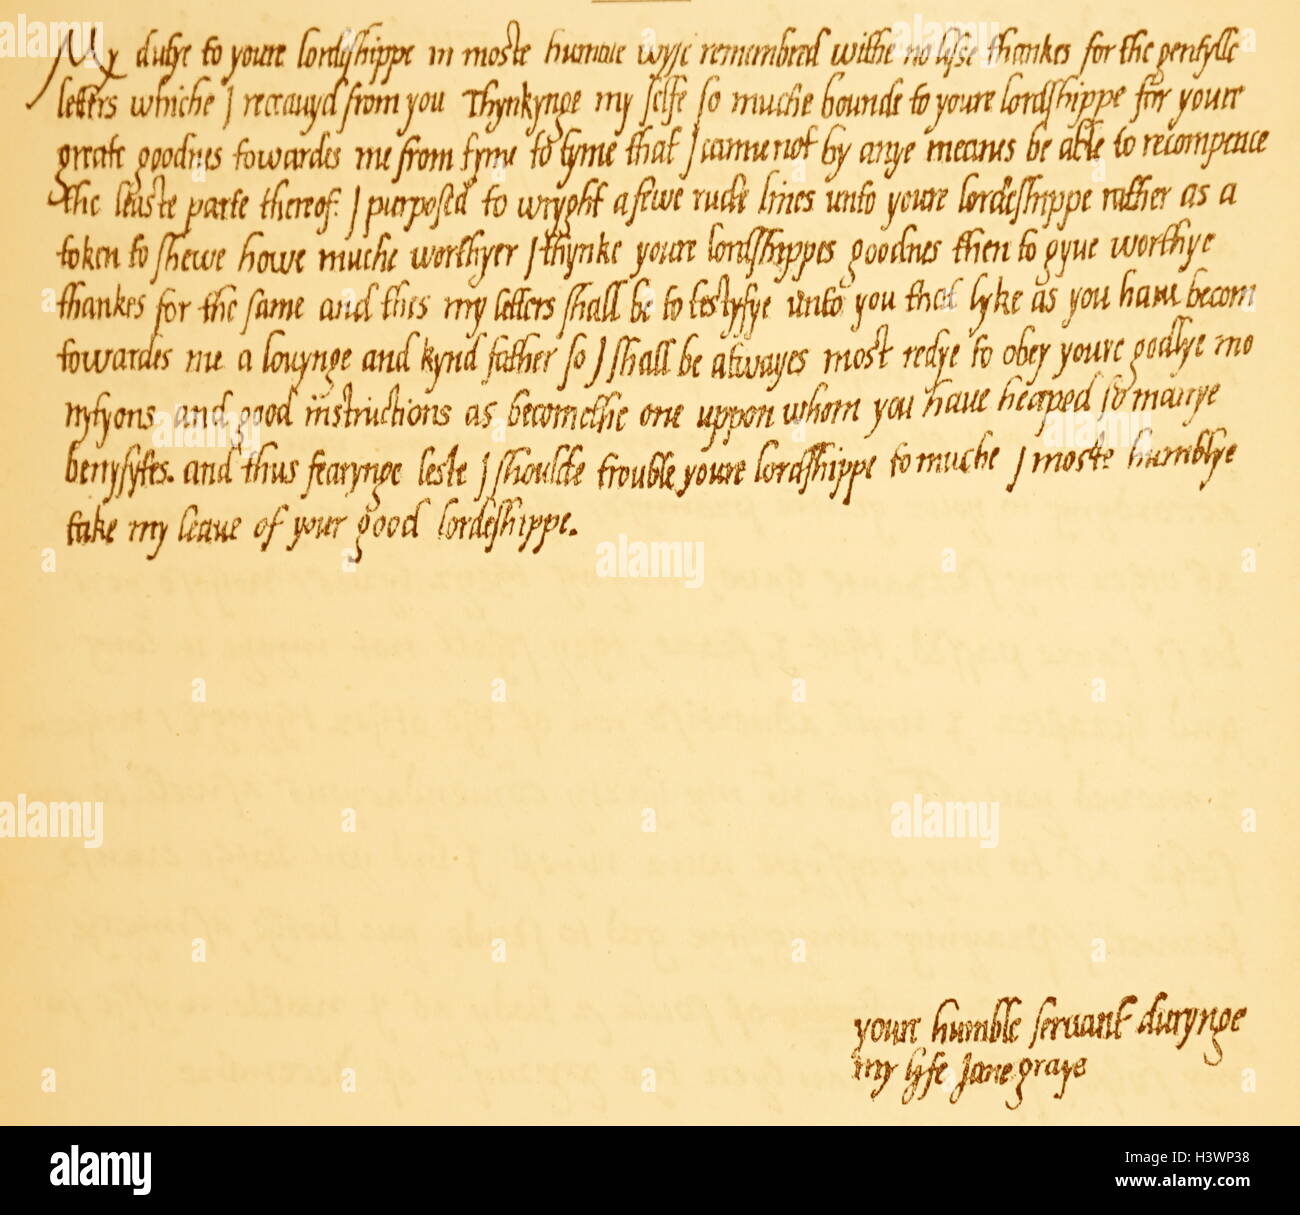 My dutye to youre lordeshippe in moste humble wyse remembred withe no lesse thankes for the gentylle
letters whiche I receauyd from you Thynkynge my selfe so muche bounde to youre lordshippe for youre
greate goodnes towardes me from tyme to tyme that I cannnot by anye meanes be able to recompence
the leaste parte thereof: I purposed to wryght a fewe rude lines unto youre lordeshippe rather as a
token to shewe howe muche worthyer I thynke youre lordshippes goodnes then to gyue worthye
thankes for the same and thes my letters shall be to testyfye unto you that lyke as you haue becom
towardes me a louynge and kynd father so I shall be alwayes most redye to obey youre godlye mo
nytyons and good instructions as becomethe one uppon whom you have heaped so manye
benyfytes. and thus fearynge leste I shoulde trouble youre lordshippe to muche I moste humblye
take my leaue of your good lordeshippe.
youre humble servant durynge
my lyfe Jane graye
alamy
alamy
Image ID: H3WP38
www.alamy.com